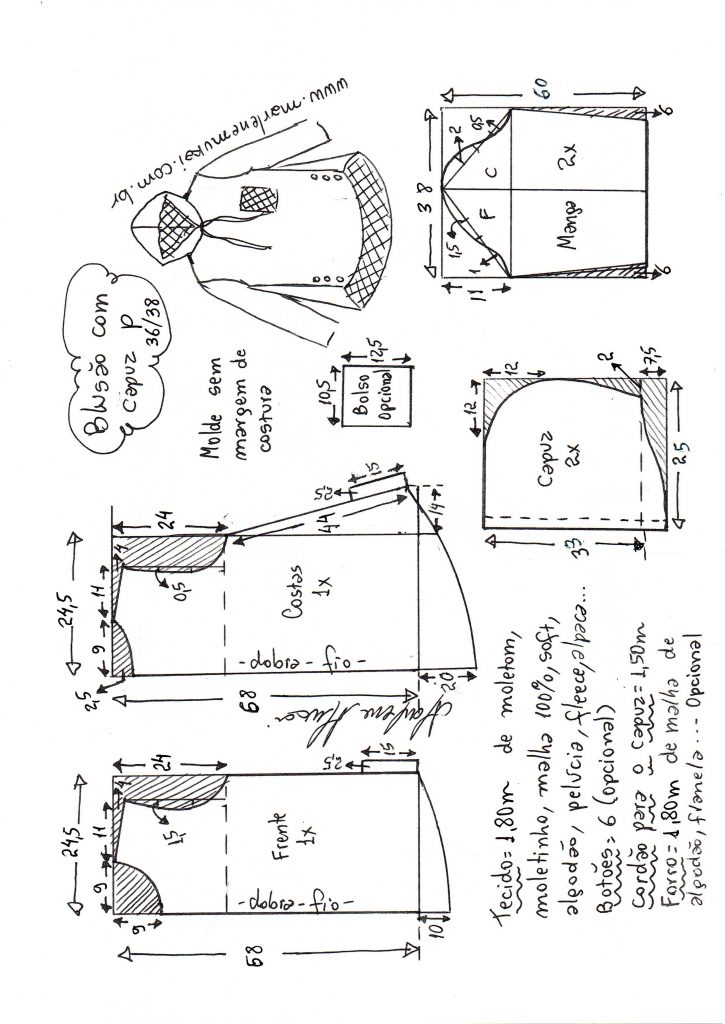 Blusão com
capuz P
36/38
www.marlenemukai.com.br
Molde sem
margem de
costura
10,5
12,5
Bolso
opcional
24,5
9
11
4
24
1,5
9
68
Frente
1x
dobra-fio
2,5
15
10
24,5
9
11
4
24
2,5
0,5
68
Costas
1x
dobra-fio
44
2,5
15
14
20
Marlene Mukai
38
60
11
1,5
1
2
0,5
F
C
Manga
2x
6
6
12
12
Capuz
2x
33
2
7,5
25
Tecido = 1,80m de moletom,
moletinho, malha 100%, soft,
algodão, pelúcia, fleece, alpaca...
Botões = 6 (opcional)
Cordão para o capuz = 1,50m
Forro = 1,80m de malha de
algodão, flanela ... - Opcional